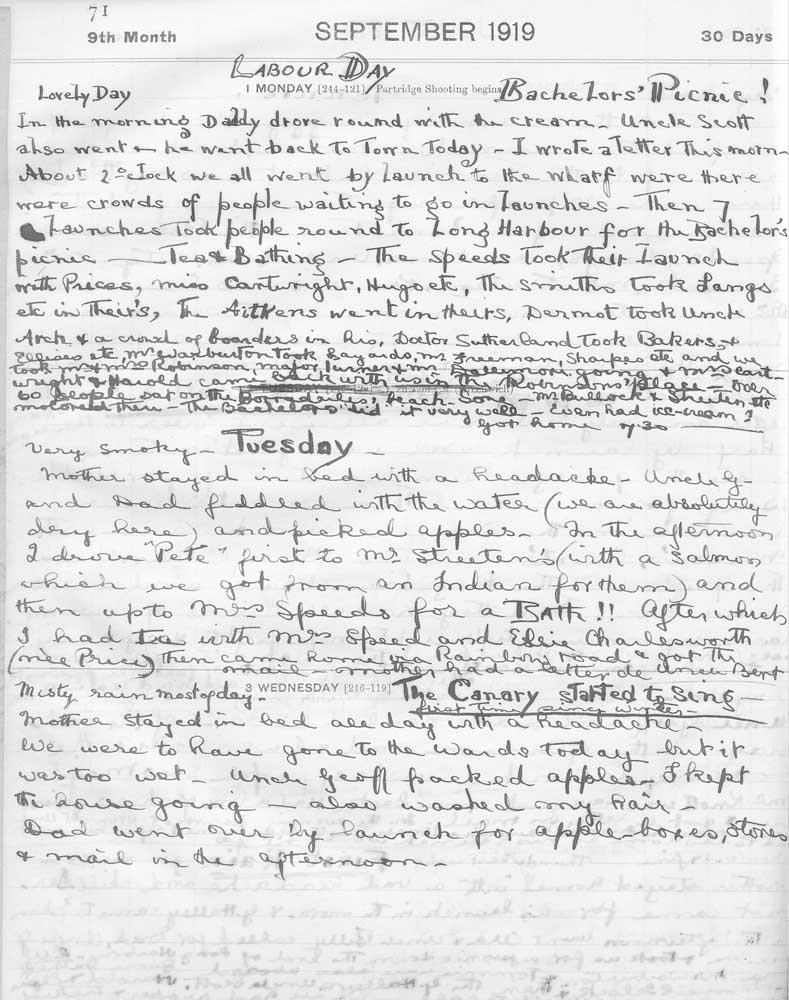 71
9th Month SEPTEMBER 1919 30 Days
LABOUR DAY
Lovely Day 1 MONDAY [244-121] Partridge Shooting begins Bachelors' Picnic!
In the morning Daddy drove round with the cream - Uncle Scott
also went & he went back to Town Today - I wrote a letter this morn-
About 2 o'clock we all went by launch to the wharf were there
were crowds of people waiting to go in launches - Then 7
launches took people round to Long Harbour for the Bachelor's
picnic — Tea & Bathing - The Speeds took their launch
with Prices, miss Cartwright, Hugock, The Smiths took Langs
etc in Their's, The Aitkens went in theirs, Dermot took Uncle
Arch & a crowd of boarders in his, Doctor Sutherland took Bakers, &
Ellises etc, Mr Warburton took Hazards, mr Freeman, Sharpes etc and we
took mr & mrs Robinson, major Turner & mr going & mrs Cart-
wright & Harold came back with us in the Robinsons' place - Over
60 people sat on the beach Some - Mr Bullock & Streeten etc
motored there - The Bachelors "did" it very well - Even had ice-cream!
Got home 7.30
Very smoky - Tuesday -
Mother stayed in bed with a headache - Uncle G-
and Dad fiddled with the water (we are absolutely
dry here) and picked apples - In the afternoon
I drove "Pete" first to Mr Streeten's (with a salmon
which we got from an Indian for them) and
then up to Mrs Speeds for a BATH!! After which
I had Tea with Mrs Speed and Elsie Charlesworth
(née Price) then came home via Rainbow road & got the
mail - mother had a letter de Uncle Bert
Misty rain most of day - 3 WEDNESDAY [246-119] The Canary started to Sing -
first time since winter -
Mother stayed in bed all day with a headache -
We were to have gone to the Wards today but it
was too wet - Uncle Geoff packed apples - I kept
the house going - also washed my hair -
Dad went over by launch for apple-boxes, stores
& mail in the afternoon -